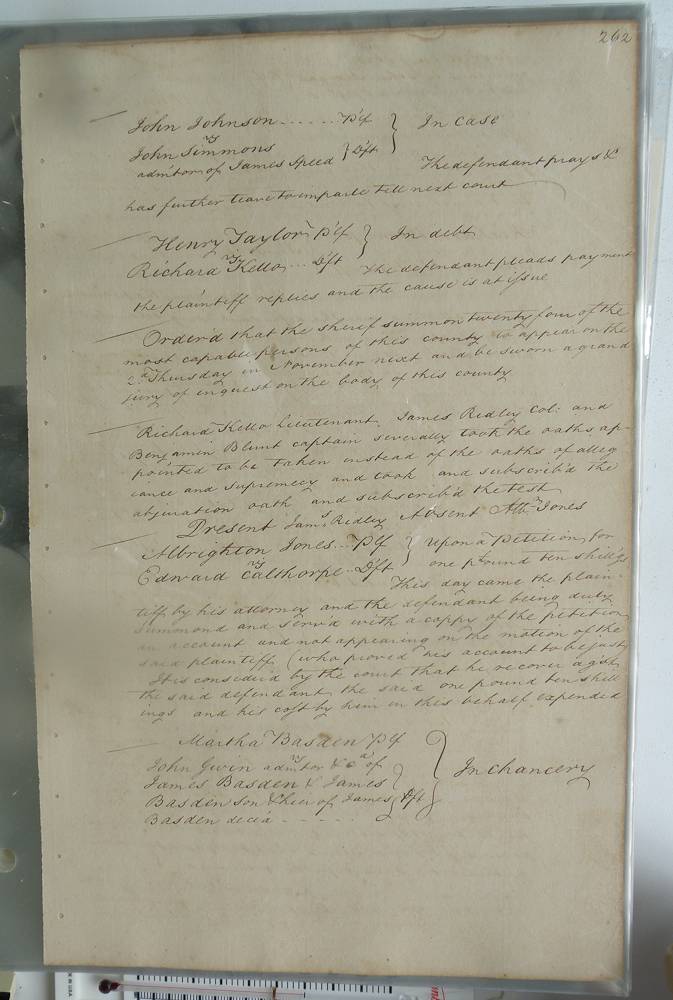 262
John Johnson ...... Plf } In case
vs
John Simmons
admtor of James Speed } Dft
The defendant prays &
has further leave to imparle till next court
Henry Taylor Plf } In debt
vs
Richard Kello ... Dft
The defendant pleads payment
the plaintiff replies and the cause is at issue
Orderd that the sherif summon twenty four of the
most capable persons of this county to appear on the
2d Thursday in November next and be sworn a grand
jury of inquest on the body of this county
Richard Kello Lieutenant James Ridley Col: and
Benjamin Blunt captain severally took the oaths ap-
pointed to be taken instead of the oaths of alleg
iance and supremecy and took and subscrib'd the
abjuration oath and subscrib'd the test
Present Jams Ridley Absent Albrn Jones
Albrighton Jones ... Plf } Upon a Petition for
vs
Edward Calthorpe .. Dft one pound ten shill'gs
This day came the plain-
tiff by his attorney and the defendant being duly
summond and serv'd with a coppy of the petition
an account and not appearing on the motion of the
said plaintiff (who proved his account to be just)
It is consider'd by the court that he recover agst
the said defendant the said one pound ten shill
ings and his cost by him in this behalf expended
Martha Basden Plf
vs
John Gwin admtor &ca of
James Basden & James
Basden son & heir of James } Dft } In Chancery
Basden decd - - - - -